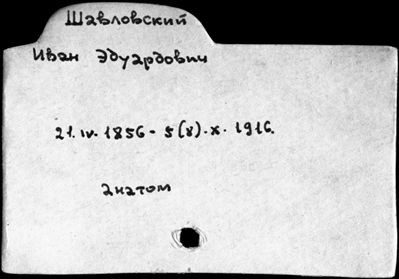 Шавловский
Иван Эдуардович
21.IV.1856 - 5(8).X.1916.
анатом